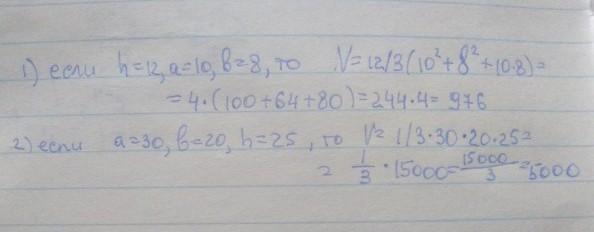 1) если h=12, a=10, b=8, то V=12/3(10²+8²+10·8)=
=4·(100+64+80)=244·4=976
2) если a=30, b=20, h=25, то V=1/3·30·20·25=
= 1/3·15000=15000/3=5000